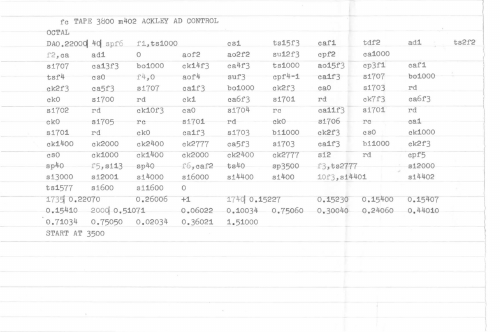 fc TAPE 3800 m402 ACKLEY AD CONTROL
OCTAL
DAO,22000| 4Q| spf6 f1,ts1000 cs1 ts15f3 caf1 tdf2 ad1 ts2f2
f2,ca ad1 0 aof2 ao2f2 su12f3 cpf2 ca1000
si707 ca13f3 bo1000 ck14f3 ca4f3 ts1000 ao15f3 cp3f1 caf1
tsf4 cs0 f4,0 aof4 suf3 cpf4-1 ca1f3 si707 bo1000
ck2f3 ca5f3 si707 ca1f3 bo1000 ck2f3 ca0 si703 rd
ck0 si700 rd ck1 ca6f3 si701 rd ck7f3 ca6f3
si702 rd ck10f3 ca0 si704 rc ca11f3 si701 rd
ck0 si705 rc si701 rd ck0 si706 rc ca1
si701 rd ck0 ca1f3 si703 bi1000 ck2f3 cs0 ck1000
ck1400 ck2000 ck2400 ck2777 ca5f3 si703 ca1f3 bi1000 ck2f3
cs0 ck1000 ck1400 ck2000 ck2400 ck2777 si2 rd cpf5
sp40 f5,si13 sp40 f6,caf2 ts40 sp3500 f3,ts2777 si2000
si3000 si2001 si4000 si6000 si4400 si400 10f3,si4401 si4402
ts1577 si600 si1600 0
1735| 0.22070 0.26006 +1 1740| 0.15227 0.15230 0.15400 0.15407
0.15410 2000| 0.51071 0.06022 0.10034 0.75060 0.30040 0.24060 0.44010
0.71034 0.75050 0.02034 0.36021 1.51000
START AT 3500